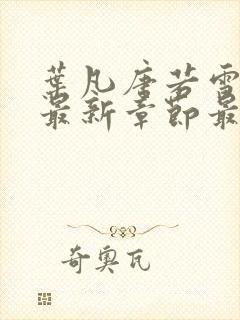 葉凡唐若雪
最新章節最
奇奧瓦